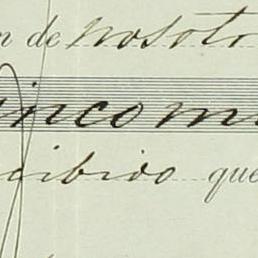 n de nosotro
incomi
cibido que